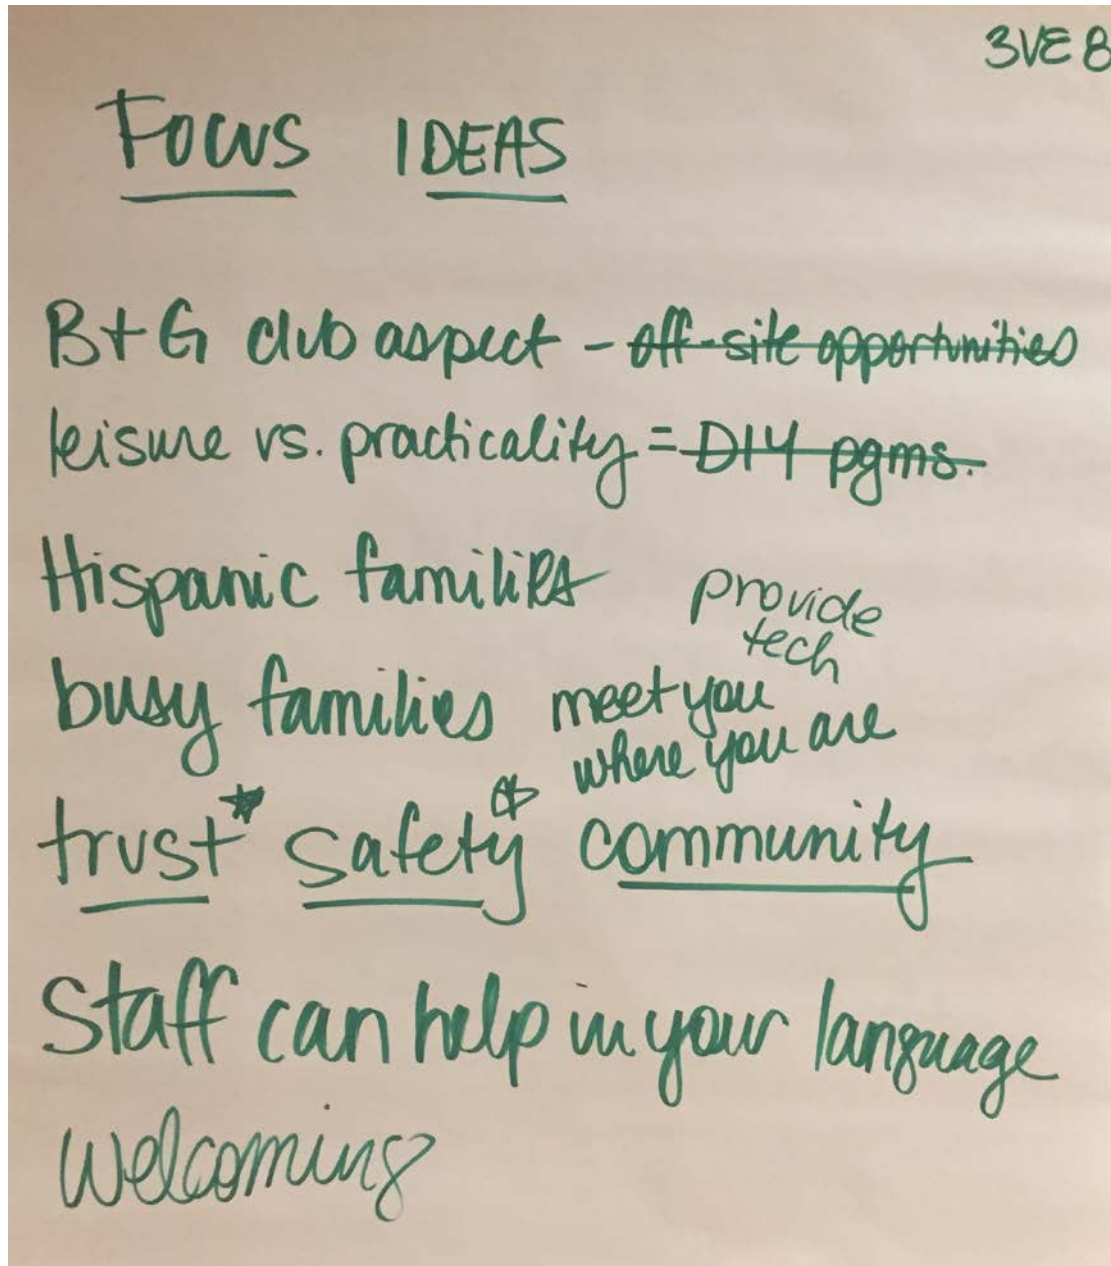 3VE8
Focus IDEAS
B+G club aspect - off-site opportunities
leisure vs. practicality = DIY pgms.
Hispanic families
provide
tech
busy families meet you
where you are
trust* safety* community
Staff can help in your language
welcoming